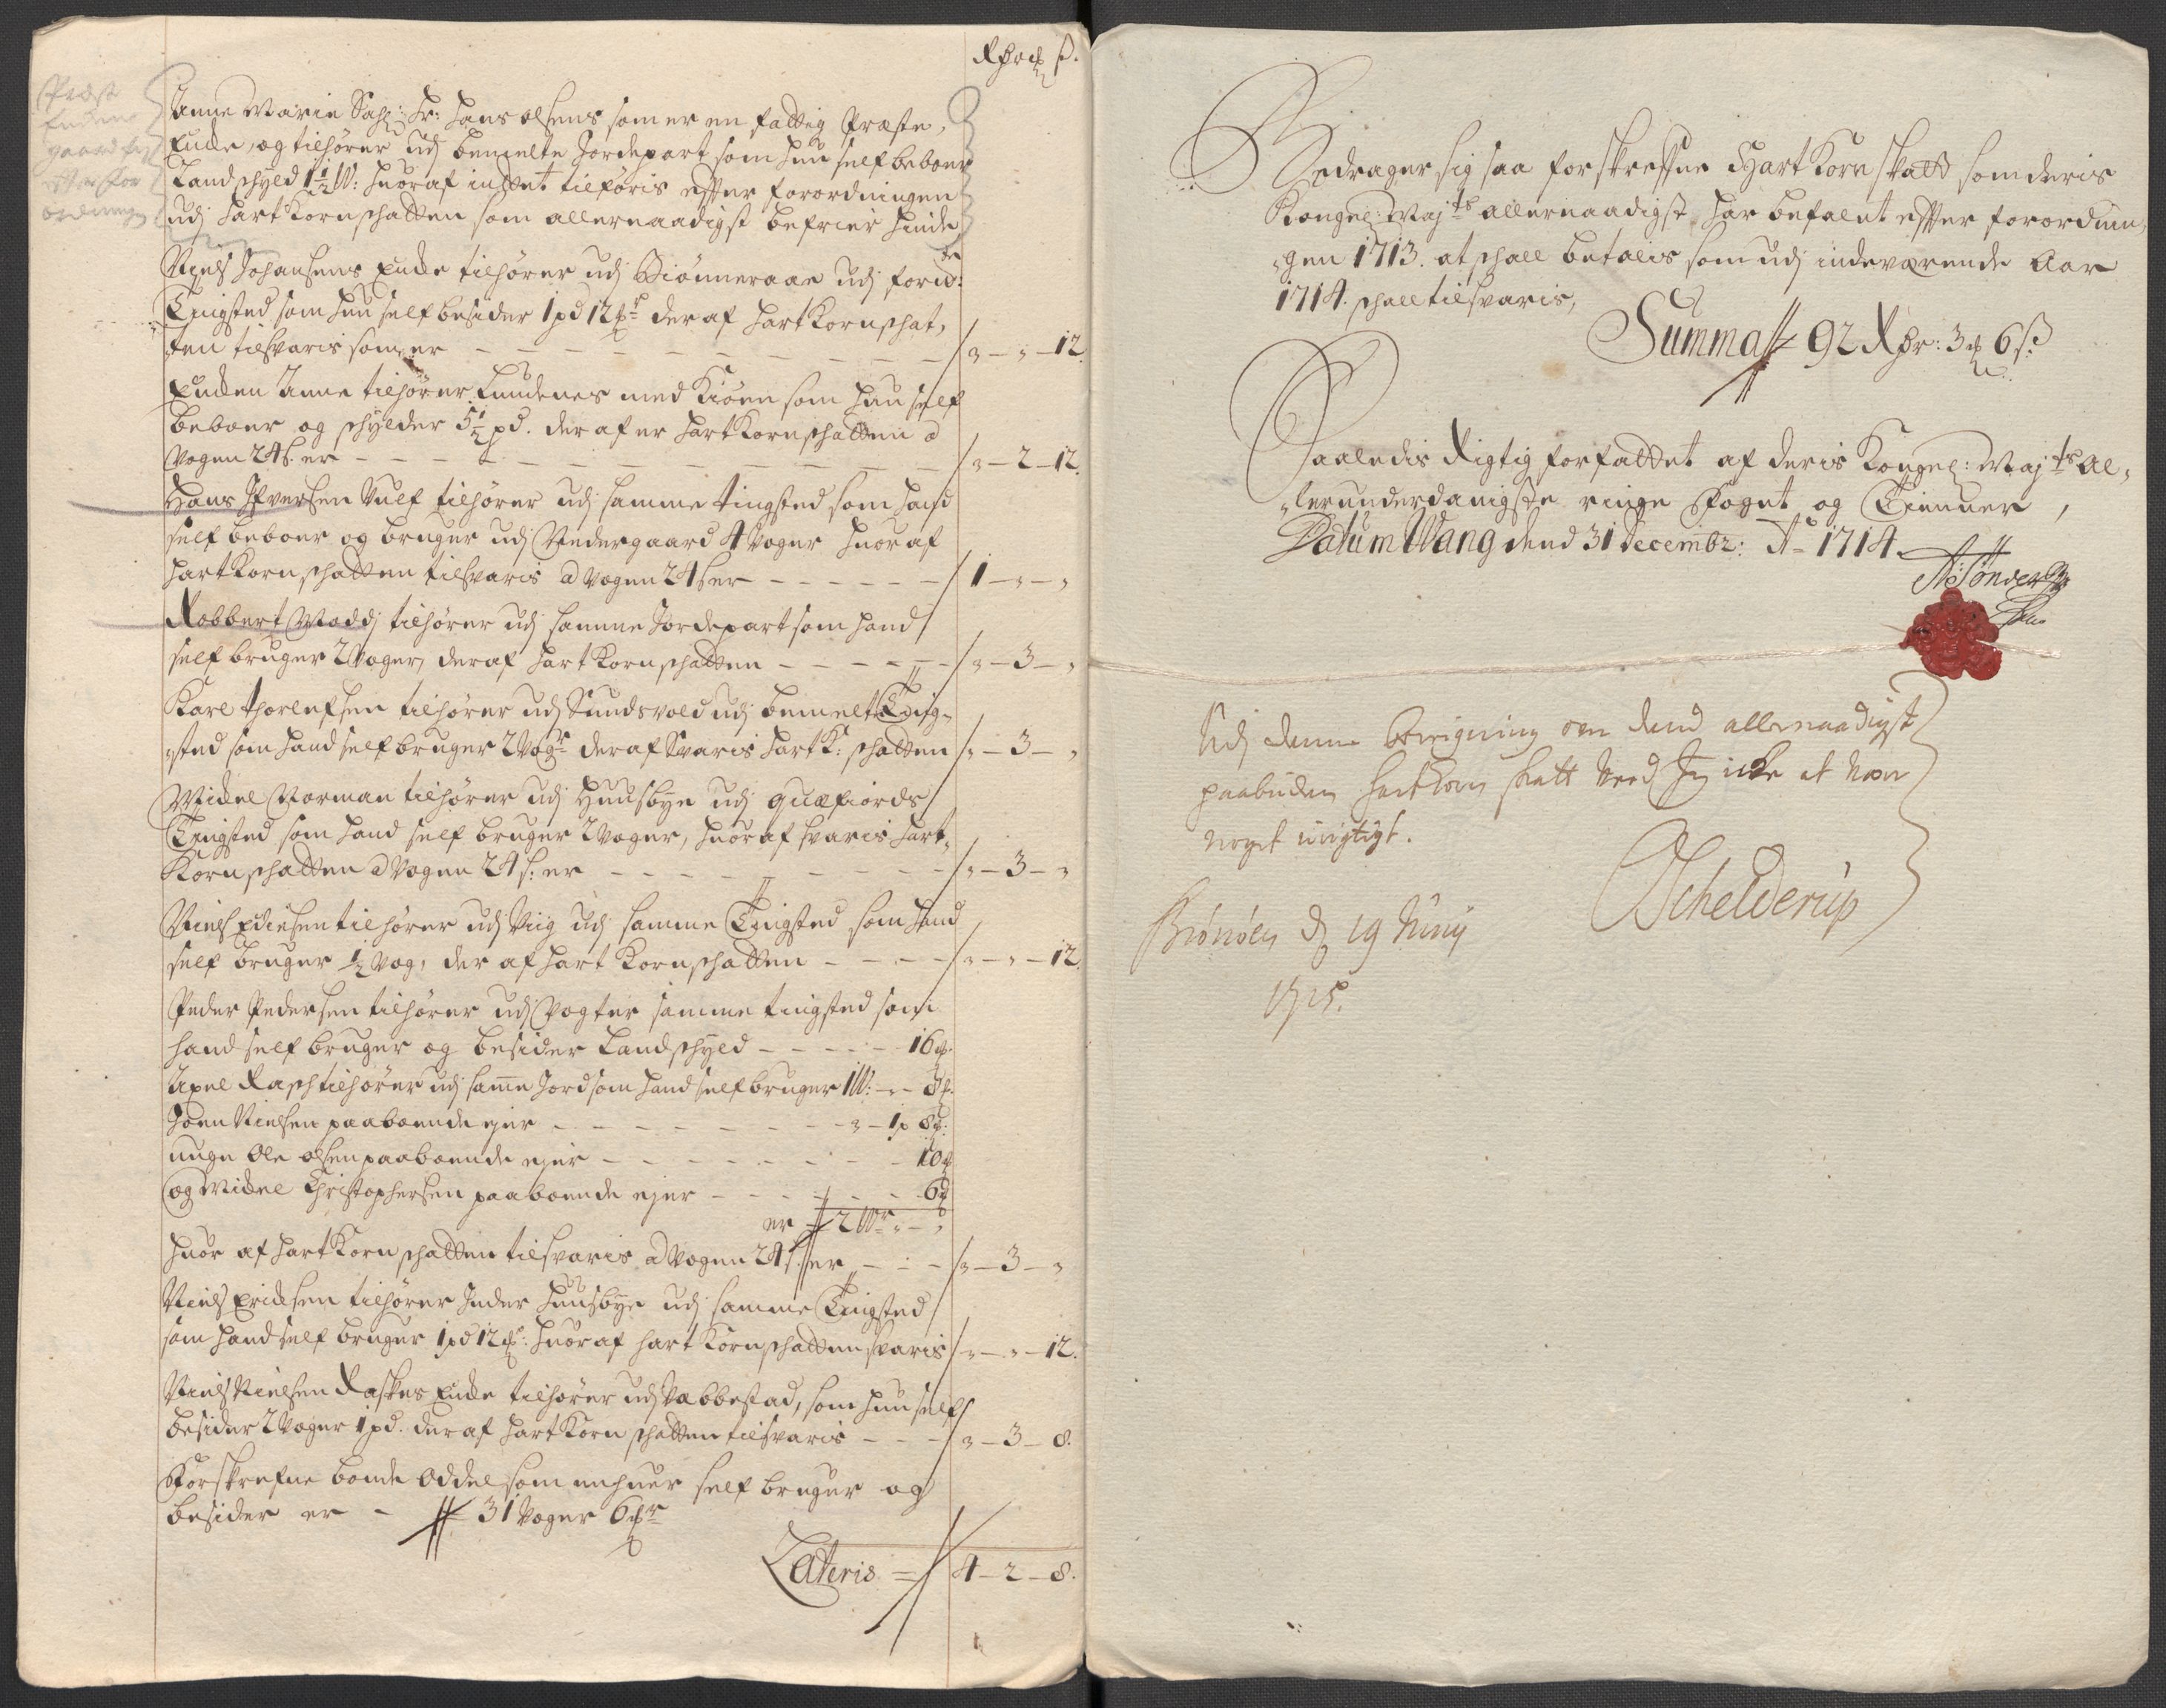 Rdr ort ß.
Anne Maria Sahl: Hr: Hans Olsens som er en fattig Præste
Encke, og tilhører udj bemelte Jordepart som hun self beboer
Landschyld 1½ W: huoraf intet tilføris effter forordningen
udj HartKornschatten som allernaadigst befrier hinde
Niels Johansens Encke tilhører udj Biønneraae udj forbe:
Tingsted som hun self besider 1 pd 12 mkr deraf HartKornschat,
ten tilsvaris som er - - - " - " - 12.
Encken Anne tilhører Lundenes med Kiøen som hun self
beboer og schylder 5½ pd. der af er HartKornschatten a
Vogen 24 s. er - - - " - 2 - 12.
Hans Ifversen Ulf tilhører udj samme tingsted som hand
self beboer og bruger udj Nedergaard 4 Voger huoraf
HartKornschatten tilsvaris a Vogen 24 s er - - - 1 - " - "
Robbert Maddj tilhører udj samme Jordepart som hand
self bruger 2 Voger, deraf HartKornschatten - - - " - 3 - "
Karl Thorlefsen tilhører udj Sundsvold udj bemelte Ting-
sted som hand self bruger 2 Wogr deraf Svaris HartK: schatten " - 3 - "
Michel Norman tilhører udj Huusbye udj Quæfiords
Tingsted som hand self bruger 2 Voger, huoraf svaris Hart,
Kornschatten a Vogen 24 s: er - - - " - 3 - "
Niels Edisen tilhører udj Viig udj samme Tingsted som hand
self bruger ½ Vog, der af Hart Kornschatten - - - " - " - 12.
Peder Pedersen tilhører udj Vogter samme tingsted som
hand self bruger og besider Landschyld - - - 16 mk.
Axel Rasch tilhører udj samme Jord som hand self bruger 1 W: - " - 8 mk.
Joen Nielsen paaboende ejer - - - " - 1 p 8 mk:
unge Ole Olsen paaboende ejer - - - 10 mk
og Michel Christophersen paaboende ejer - - - 6 mk
er 2 Wr " - "
huor af HartKornschatten tilsvaris a Vogen 24 s. er - - - " - 3 - "
Niels Erichsen tilhører Inder Huusbye udj samme Tingsted
som hand self bruger 1 pd 12 mk: huoraf hart Kornschatten svaris " - " - 12.
Niels Nielsen Raskes Encke tilhører udj Væbbestad, som hun self
besider 2 Voger 1 pd. der af HartKornschatten tilsvaris - - - " - 3 - 8.
Forskrefne bonde Oddel som enhuer self bruger og
besider er - 31 Voger 6 mkr
Lateris = 4 - 2 - 8.
Bedrager sig saa forskrefne HartKornskatt som deris
Kongel: Maj:ts allernaadigst har befalet effter forordnin,
gen 1713. at schall betalis som udj indeværende Aar
1714. schall tilsvaris,
Summa 92 Rdr: 3 ort 6 s.
Saaledis Rigtig forfattet af deris Kongel: Maj:ts Al-
lerunderdanigste ringe Fogut og Tienner,
Datum Wang dend 31 Decembr: Ao 1714.
Udj denne beregning om dend allernaadigst
paabuden hartkorn skatt veed Jeg icke at være
noget urigtigt.
Brønøen d 19 Junij
1715.
Schelderup